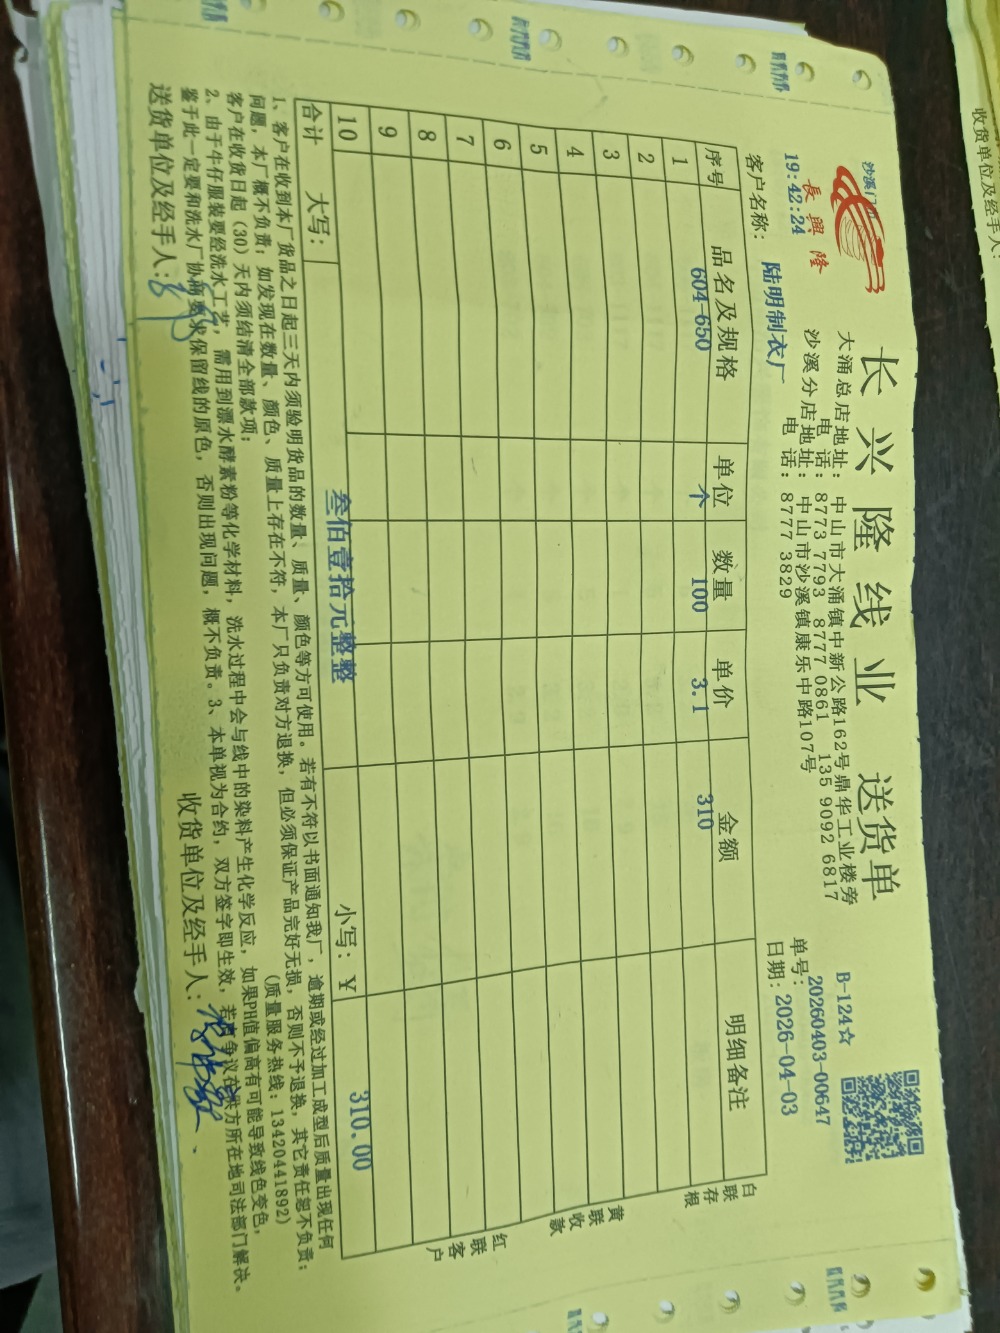 长兴隆线业 送货单
B-124☆
沙溪门
長興隆
大涌总店地址：中山市大涌镇中新公路162号鼎华工业楼旁
电话：8773 7793 8777 0861 135 9092 6817
沙溪分店地址：中山市沙溪镇康乐中路107号
电话：8777 3829
单号：20260403-00647
19:42:24
日期：2026-04-03
客户名称：陆明制衣厂
序号 品名及规格 单位 数量 单价 金额 明细备注
1 604-650 个 100 3.1 310
2
3
4
5
6
7
8
9
10
合计 大写：叁佰壹拾元整整 小写：¥ 310.00
白联存根
黄联收款
红联客户
1、客户在收到本厂货品之日起三天内须验明货品的数量、质量、颜色等方可使用。若有不符以书面通知我厂，逾期或经过加工成型后质量出现任何
问题，本厂概不负责；如发现在数量、颜色、质量上存在不符，本厂只负责对方退换，但必须保证产品完好无损，否则不予退换，其它责任恕不负责；
客户在收货日起（30）天内须结清全部款项；
（质量服务热线：13420441892）
2、由于牛仔服装要经洗水工艺，需用到漂水酵素粉等化学材料，洗水过程中会与线中的染料产生化学反应，如果PH值偏高有可能导致线色变色，
鉴于此一定要和洗水厂协商要求保留线的原色，否则出现问题，概不负责。3、本单视为合约，双方签字即生效，若有争议在供方所在地司法部门解决。
送货单位及经手人：
收货单位及经手人：
收货单位及经手人：